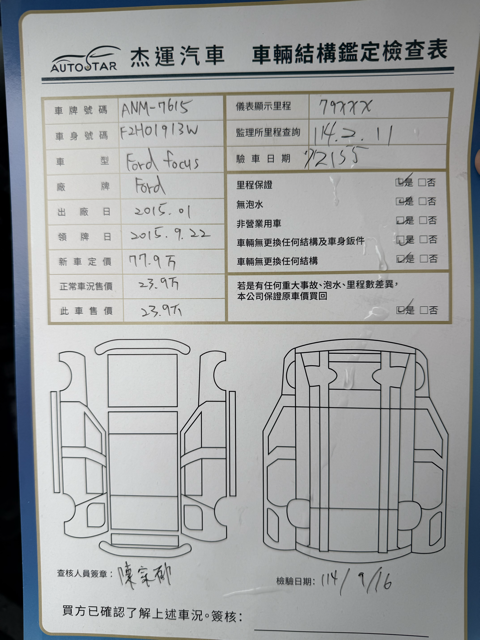 AUTOSTAR 杰運汽車 車輛結構鑑定檢查表
車牌號碼 ANM-7615 儀表顯示里程 79XXX
車身號碼 F2H01913W 監理所里程查詢 114.2.11
車型 Ford focus 驗車日期 72155
廠牌 Ford 里程保證 ☑是 □否
無泡水 ☑是 □否
出廠日 2015.01 非營業用車 ☑是 □否
領牌日 2015.9.22 車輛無更換任何結構及車身鈑件 ☑是 □否
新車定價 77.9万 車輛無更換任何結構 ☑是 □否
正常車況售價 23.9万 若是有任何重大事故、泡水、里程數差異，
本公司保證原車價買回
此車售價 23.9万 ☑是 □否
查核人員簽章： 檢驗日期：114/9/16
買方已確認了解上述車況。簽核：